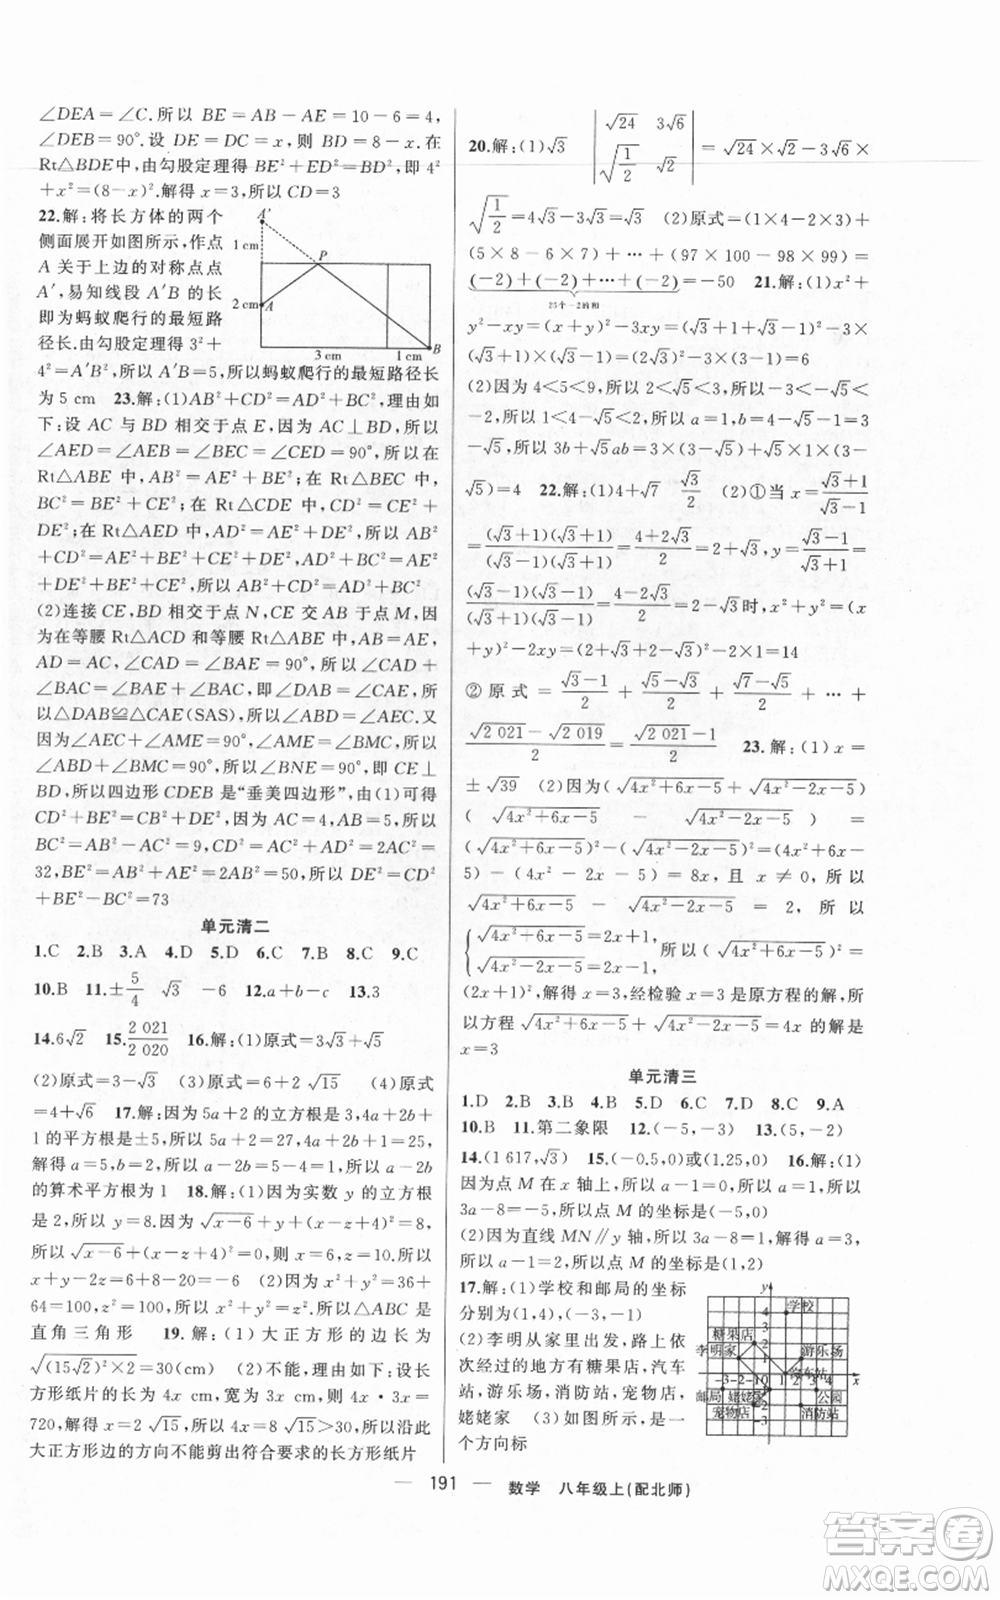 ∠DEA=∠C.所以 BE=AB-AE=10-6=4,
∠DEB=90°.设 DE=DC=x,则 BD=8-x.在
Rt△BDE中,由勾股定理得BE²+ED²=BD²,即 4²
+x²=(8-x)².解得 x=3,所以 CD=3
22.解:将长方体的两个
侧面展开如图所示,作点
A 关于上边的对称点点
A′,易知线段 A′B 的长
即为蚂蚁爬行的最短路
径长.由勾股定理 3²+
4²=A′B².所以 A′B=5,所以蚂蚁爬行的最短路径长
为 5 cm 23.解:(1)AB²+CD²=AD²+BC²,理由如
下:设 AC 与 BD 相交于点 E,因为 AC⊥BD,所以
∠AED=∠AEB=∠BEC=∠CED=90°.所以在
Rt△ABE 中,AB²=AE²+BE²;在 Rt△BEC 中,
BC²=BE²+CE²;在 Rt△CED 中,CD²=CE²+
DE²;在Rt△AED 中,AD²=AE²+DE²,所以 AB²
+CD²=AE²+BE²+CE²+DE²,AD²+BC²=AE²
+DE²+BE²+CE²,所以 AB²+CD²=AD²+BC²
(2)连接 CE,BD 相交于点 N,CE 交 AB 于点 M,因
为在等腰 Rt△ACD 和等腰 Rt△ABE 中,AB=AE,
AD=AC,∠CAD=∠BAE=90°,所以∠CAD+
∠BAC=∠BAE+∠BAC,即∠DAB=∠CAE,所
以△DAB≌△CAE(SAS),所以∠ABD=∠AEC.又
因为∠AEC+∠AME=90°,∠AME=∠BMC,所以
∠ABD+∠BMC=90°,所以∠BNE=90°,即 CE⊥
BD,所以四边形 CDEB 是“垂美四边形”,由(1)可得
CD²+BE²=BC²+DE².因为 AC=4,AB=5,所以
BC²=AB²-AC²=9,CD²=AD²+AC²=2AC²=
32,BE²=AB²+AE²=2AB²=50,所以 DE²=CD²
+BE²-BC²=73
单元清二
1.C 2.B 3.A 4.D 5.D 6.C 7.B 8.C 9.C
10.B 11.±5/4 √3 -6 12.a+b-c 13.3
14.6√2 15.2 021/2 020 16.解:(1)原式=3√3+√5
(2)原式=3-√3 (3)原式=6+2√15 (4)原式=
4+√6 17.解:因为5a+2的立方根是3,4a+2b-8
的平方根是±5,所以 5a+2=27,4a+2b-8=25,
所以 a=5,b=13/2,所以 a-2b+9=1,所以 a-2b+9
的算术平方根为 1 18.解:(1)因为实数 y 的立方根
是2,所以 y=8.因为√(x-6)+(y-2z+4)²=0,
所以√(x-6)+(12-2z)²=0,则 x=6,z=6,所以
x+y-2z=6+8-2×6=2 (2)因为 x²+z²=36+
64=100,z²=100,所以 x²+y²=z²,所以△ABC 是
直角三角形 19.解:(1)大正方形的边长为
√((15√2)²×2)=30(cm) (2)不能,理由如下:设长
方形纸片的长为 4x cm,宽为 3x cm,则 4x·3x=
720,解得 x=2√15,4x=8√15>30,所以沿此
大正方形边的方向不能剪出符合要求的长方形纸片
A′
1 cm
P
2 cm
A
3 cm
1 cm
B
20.解:(1)√3 |√24 3√6 √(1/2) √2|=√24×√2-3√6×
√(1/2)=4√3-3√3=√3 (2)原式=(1×4-2×3)+
(5×8-6×7)+…+(97×100-98×99)=
(-2)+(-2)+…+(-2)=-50 21.解:(1)x²+
25个-2的和
y²-xy=(x+y)²-3xy=(√3+1+√3-1)²-3×
(√3+1)(√3-1)=(2√3)²-3×(3-1)=6
(2)因为 4<5<9,所以 2<√5<3,所以-3<-√5<
-2,所以 1<4-√5<2,所以 a=1,b=4-√5-1=3
-√5,所以 3b+√5ab=3×(3-√5)+√5×1×(3-
√5)=4 22.解:(1)4+√7 √3/2 (2)①当 x=(√3+1)/(√3-1)
=(√3+1)(√3+1)/(√3-1)(√3+1)=(4+2√3)/2=2+√3,y=(√3-1)/(√3+1)=
(√3-1)(√3-1)/(√3+1)(√3-1)=(4-2√3)/2=2-√3时,x²+y²=(x
+y)²-2xy=(2+√3+2-√3)²-2×1=14
②原式=(√3-1)/2+(√5-√3)/2+(√7-√5)/2+…+
(√2 021-√2 019)/2=(√2 021-1)/2 23.解:(1)x=
±√39 (2)因为(√(4x²+6x-5)+√(4x²-2x-5))
(√(4x²+6x-5)-√(4x²-2x-5))=
(√(4x²+6x-5))²-(√(4x²-2x-5))²=(4x²+6x-
5)-(4x²-2x-5)=8x,且 x≠0,所以
√(4x²+6x-5)-√(4x²-2x-5)=2,所以
{√(4x²+6x-5)=2x+1, √(4x²-2x-5)=2x-1, 所以(√(4x²+6x-5))²=
(2x+1)²,解得 x=3,经检验 x=3 是原方程的解,所
以方程√(4x²+6x-5)+√(4x²-2x-5)=4x 的解是
x=3
单元清三
1.D 2.B 3.B 4.B 5.D 6.C 7.D 8.C 9.A
10.B 11.第二象限 12.(-5,-3) 13.(5,-2)
14.(1 617,√3) 15.(-0.5,0)或(1.25,0) 16.解:(1)
因为点 M 在 x 轴上,所以 a-1=0,所以 a=1,所以
3a-8=-5,所以点 M 的坐标是(-5,0)
(2)因为直线 MN∥y 轴,所以 3a-8=1,解得 a=3,
所以 a-1=3-1=2,所以点 M 的坐标是(1,2)
17.解:(1)学校和邮局的坐标
分别为(1,4),(-3,-1)
(2)李明从家里出发,路上依
次经过的地方有糖果店,汽车
站,游乐场,消防站,宠物店,
姥姥家 (3)如图所示,是一
个方向标
y
学校
糖果店
李明家
游乐场
汽车站
x
邮局
姥姥家
公园
宠物店
消防站
— 191 — 数学 八年级上(配北师)
答案卷
MXQE.COM